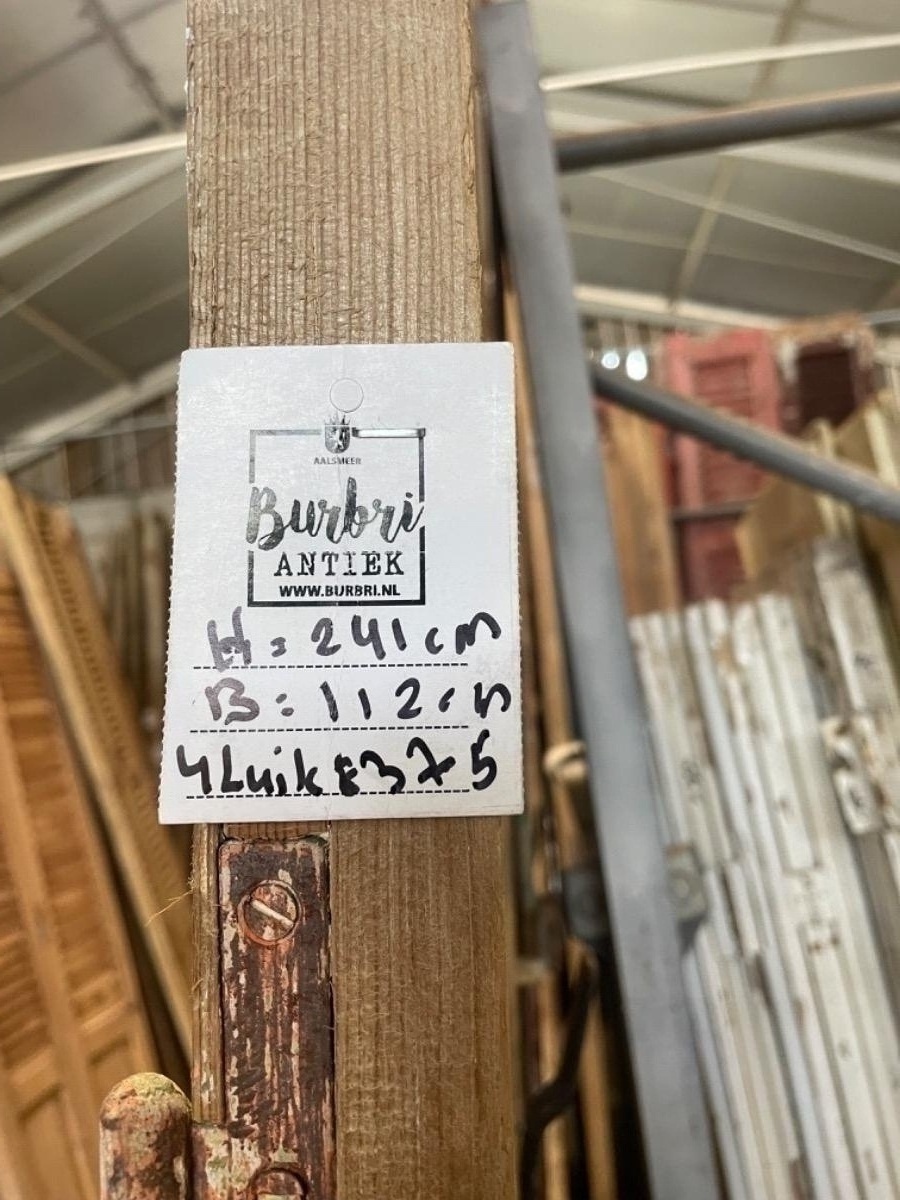 AALSMEER
Burbri
ANTIEK
WWW.BURBRI.NL
H = 241 cm
B = 112 cm
4 Luik €375